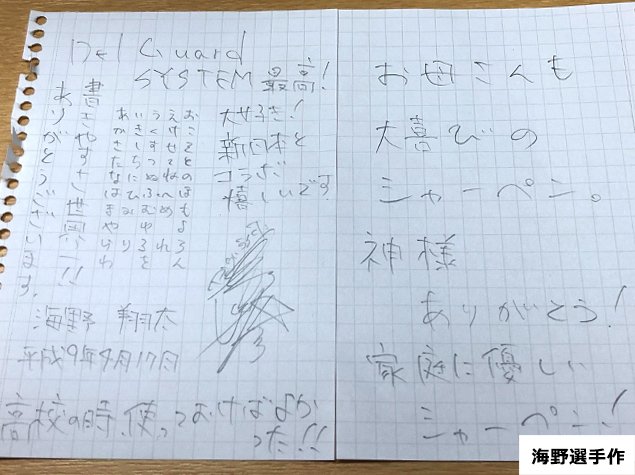 Del Guard
SYSTEM 最高!
大好き!
新日本と
コラボ
嬉しいです
あいうえお
かきくけこ
さしすせそ
たちつてと
なにぬねの
はひふへほ
まみむめも
や ゆ よ
らりるれろ
わ を ん
書きやすさ世界一!!
ありがとうございます。
海野 翔太
平成9年4月17日
高校の時、使っておけばよか
った!!
お母さんも
大喜びの
シャーペン。
神様
ありがとう!
家庭に優しい
シャーペン!
海野選手作